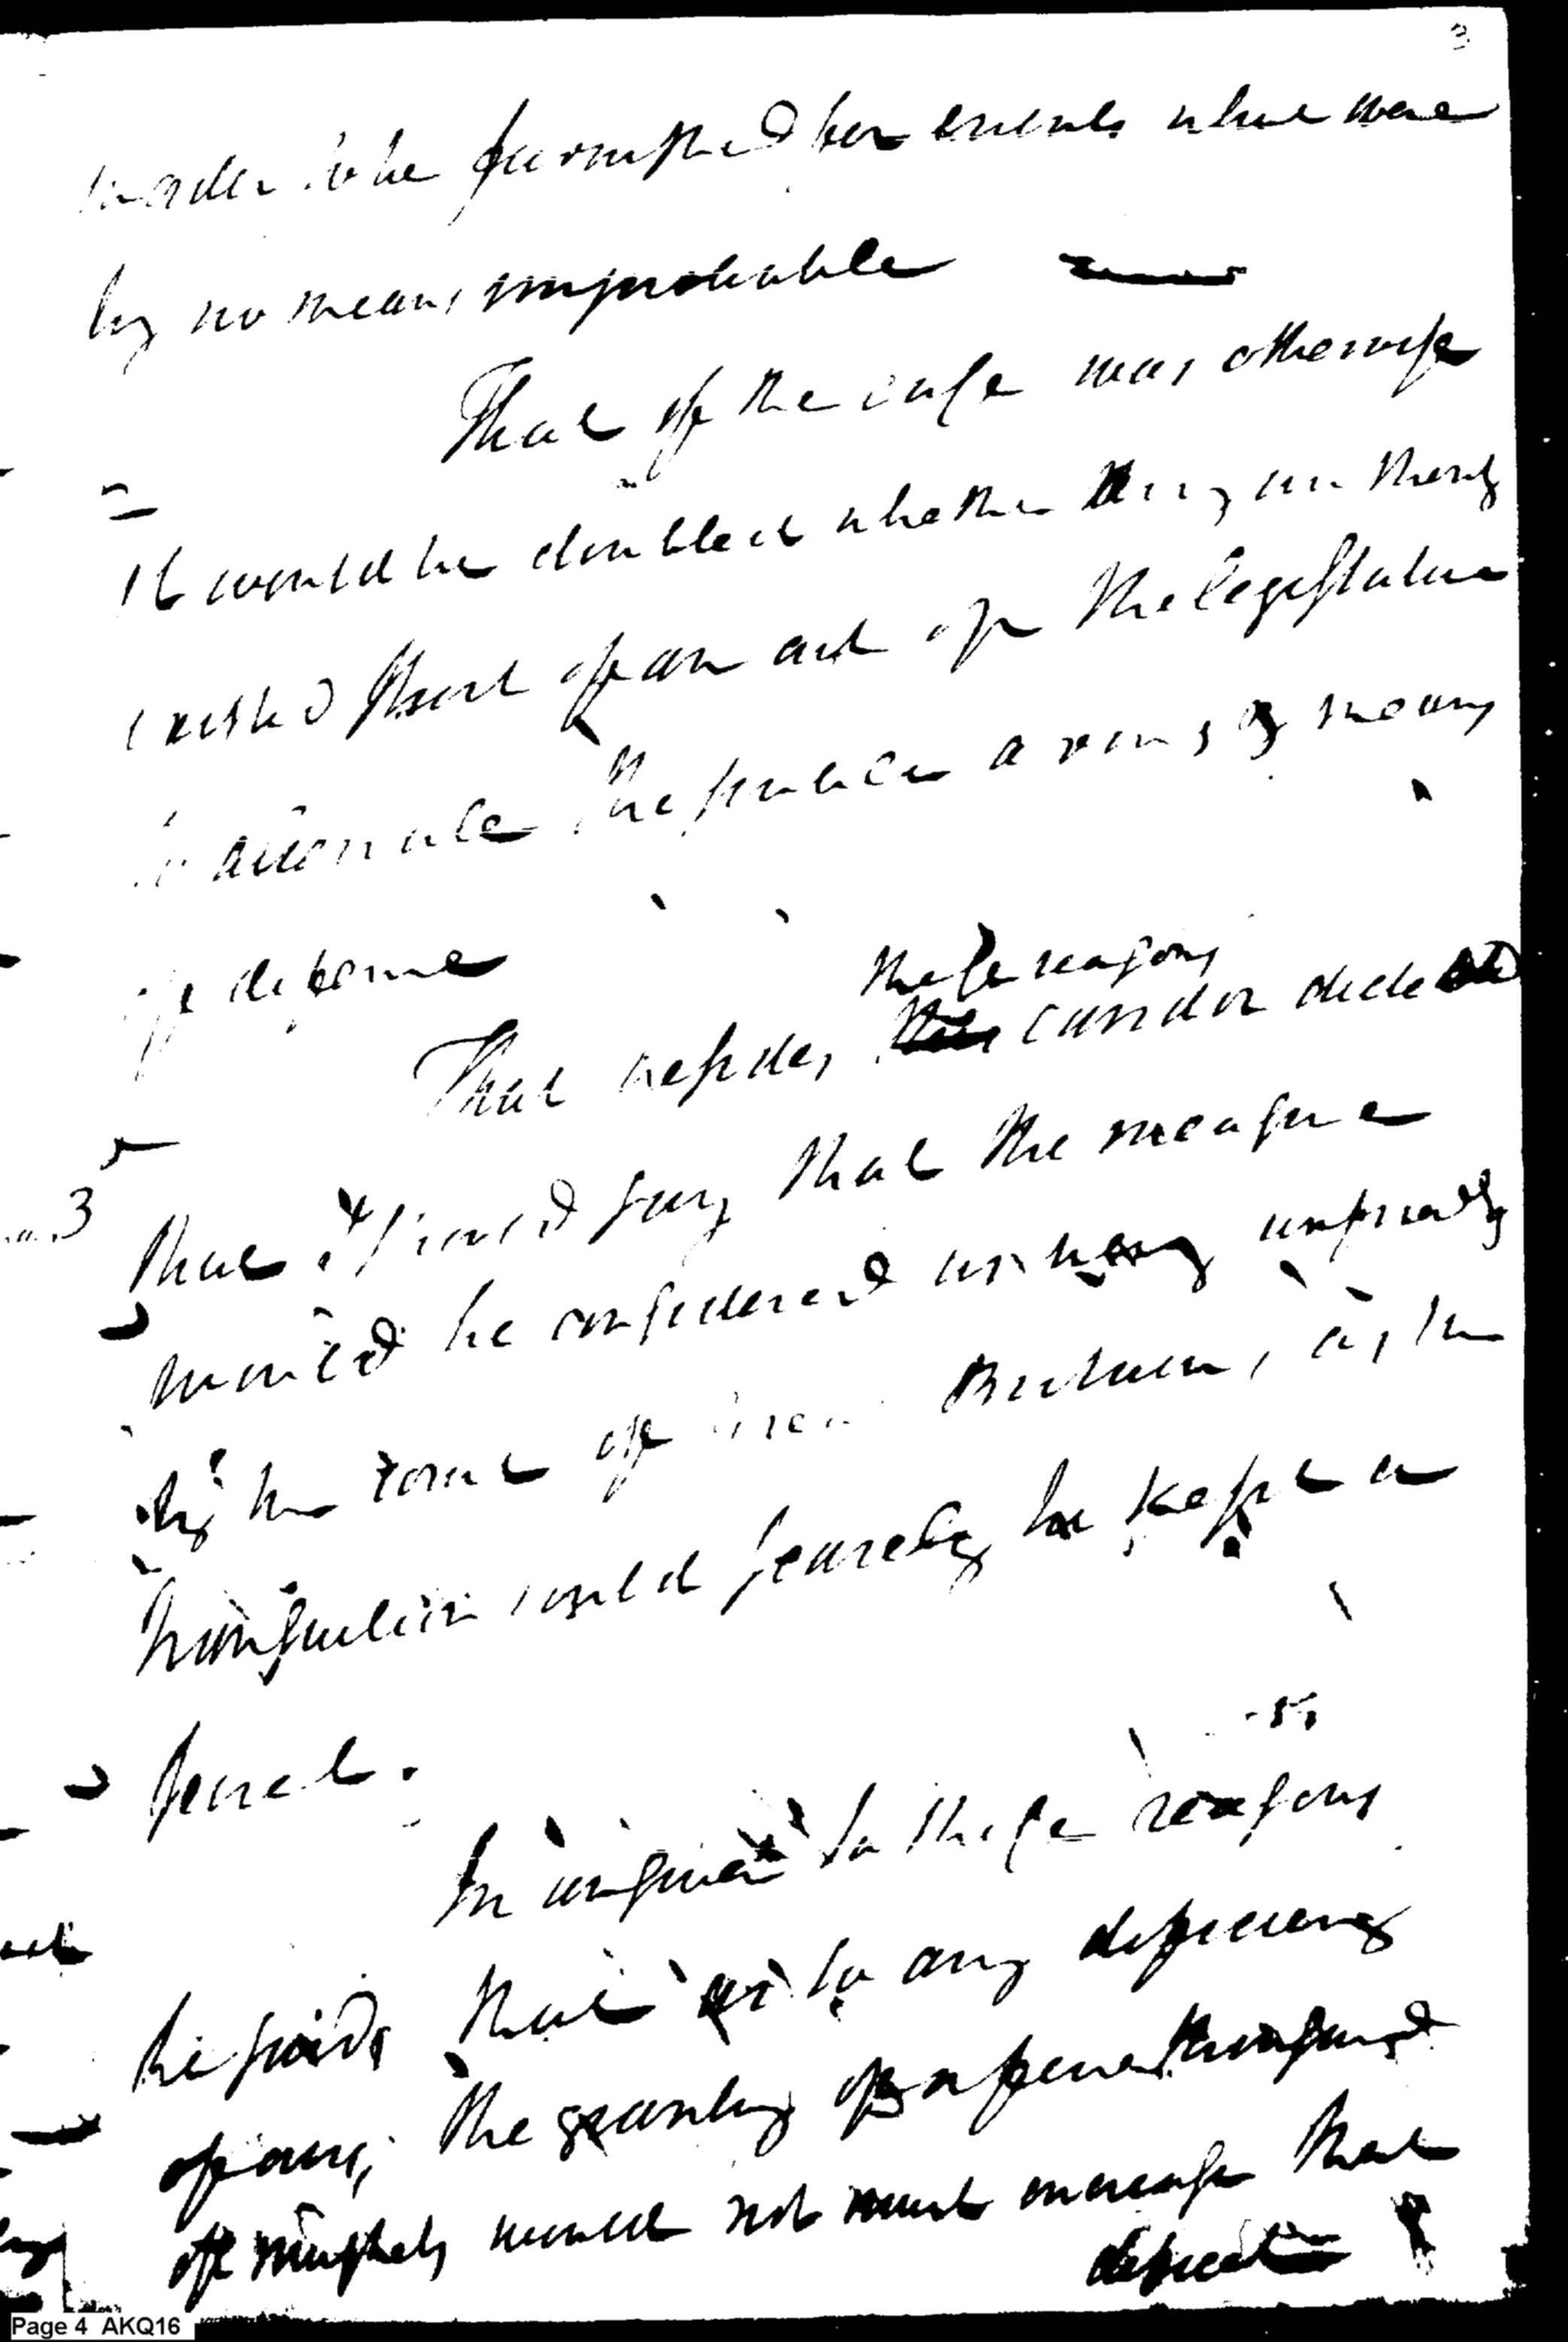 3
in order to be furnished for events which were
by no means improbable
That if the case was otherwise
It would be doubted whether any authority
existed short of an act of the legislature
to alienate the public arms & means
of defence
these reasons
That besides candor dictated
that I should say that the measure
would be considered as very unfriendly
by the some of Great Britain, as the
transaction could scarcely be kept a
3
secret.
In answer to these reasons
he said, that as to any deficiency
of arms, the granting of a few thousand
of muskets would not much increase that
deficit
Page 4 AKQ16